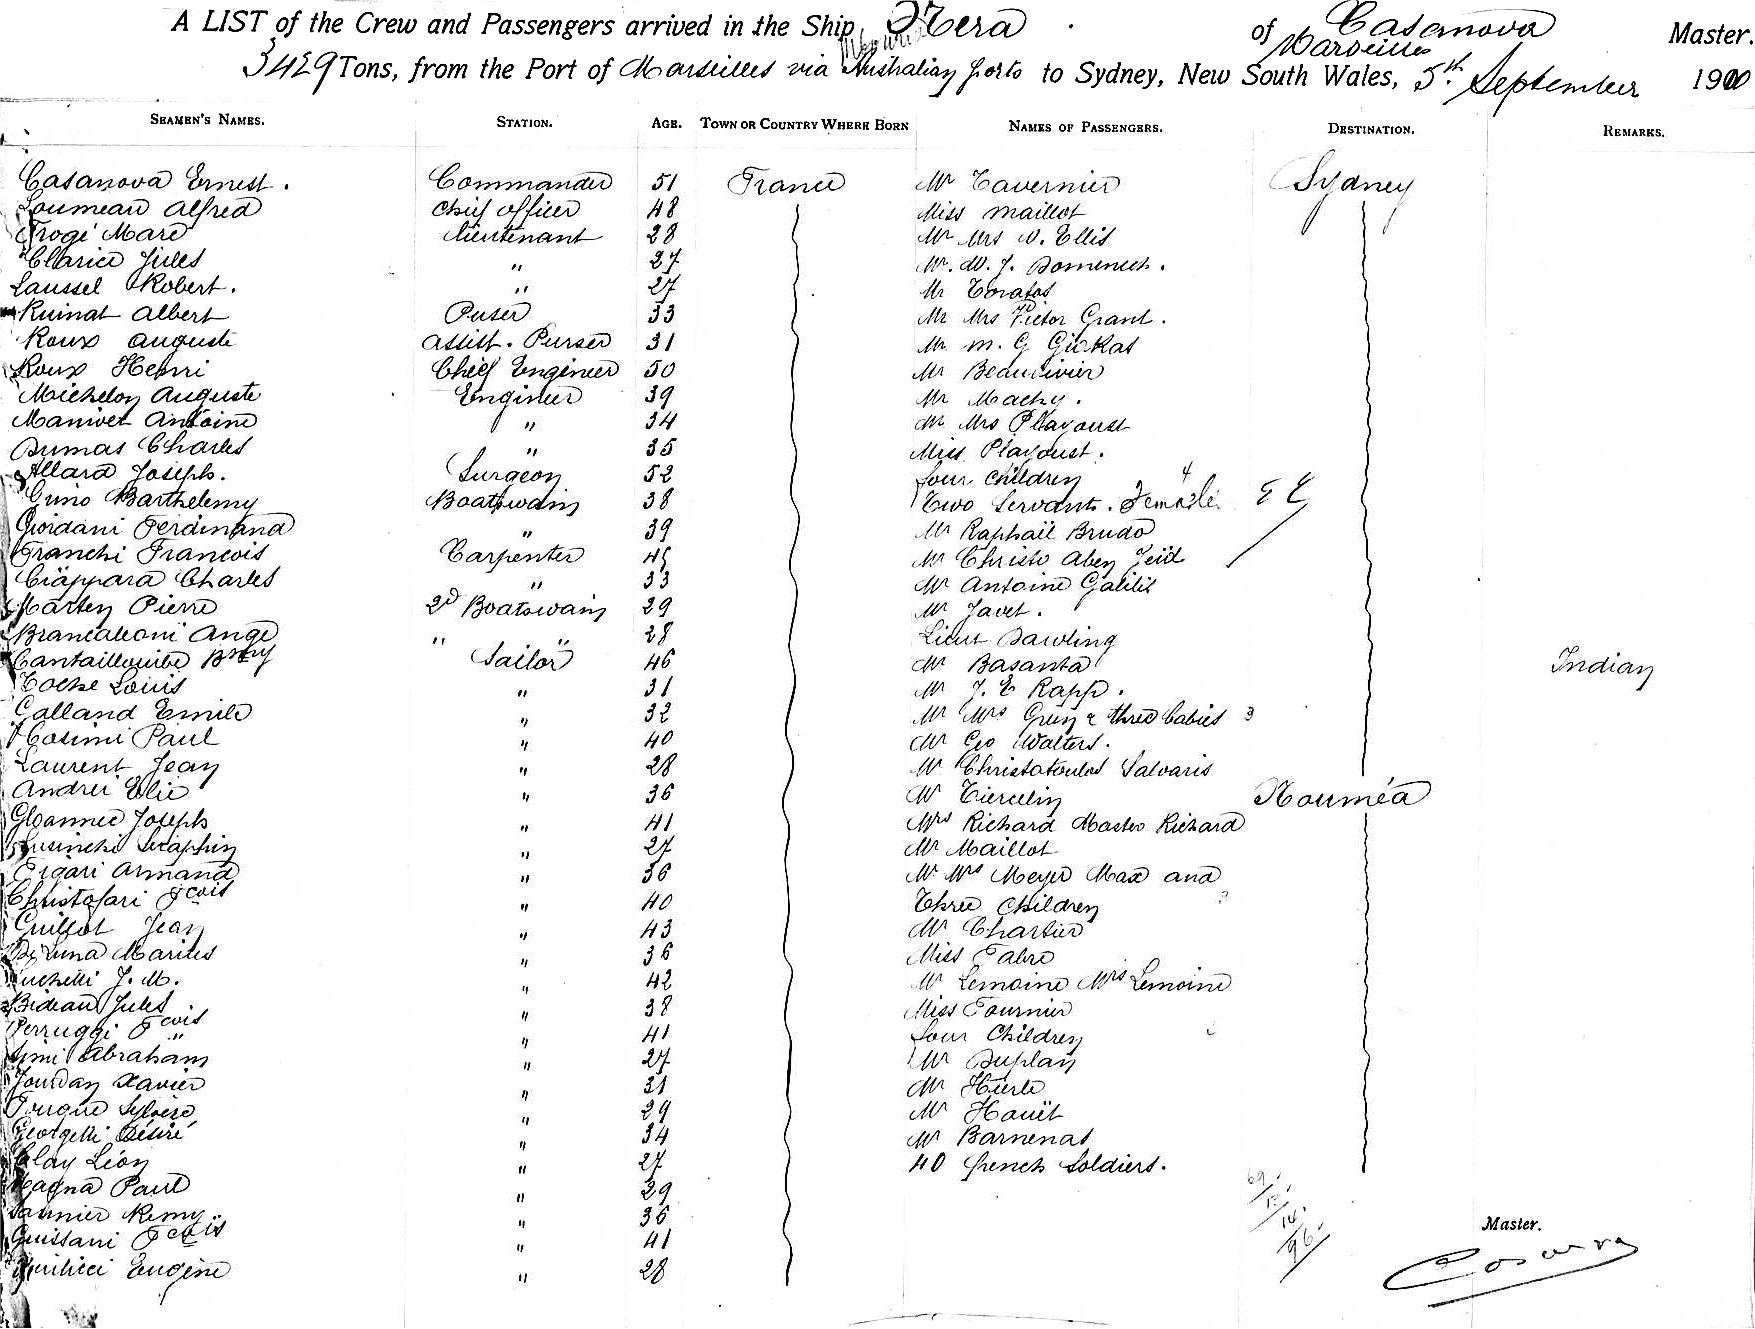 A LIST of the Crew and Passengers arrived in the Ship Nera of Casanova Master.
Marseilles
3429 Tons, from the Port of Marseilles via Australian ports to Sydney, New South Wales, 5th September 1900
SEAMEN'S NAMES. STATION. AGE. TOWN OR COUNTRY WHERE BORN NAMES OF PASSENGERS. DESTINATION. REMARKS.
Casanova Ernest. Commander 51 France Mr Tavernier Sydney
Loumeau Alfred Chief Officer 48 Miss Maillot
Trogé Marc Lieutenant 28 Mr Mrs W. Ellis
Clarice Jules " 27 Mr. W. J. Domenech.
Laussel Robert. " 27 Mr
Ruinat Albert Puser 33 Mr Mrs Victor Grant.
Roux Auguste Assist. Purser 31 Mr M. G Giokas
Roux Henri Chief Engineer 50 Mr Beauvivier
Michelon Auguste Engineer 39 Mr Machy.
Manivet Antoine " 34 Mr Mrs Playoust
Dumas Charles " 35 Miss Playoust.
Allard Joseph. Surgeon 52 four children 4
Guino Barthelemy Boatswain 38 Two Servants. Female
Giordani Ferdinand " 39 Mr Raphaël Brudo
Franchi Francois Carpenter 45 Mr Christo Abey Zeid
Ciappara Charles " 33 Mr Antoine Galilie
Marten Pierre 2d Boatswain 29 Mr Javet.
Brancaleoni Ange " " 28 Lieut Dawling
Cantailloube Bmy Sailor 46 Mr Basanta Indian
Coche Louis " 31 Mr J. E Rapp.
Galland Emile " 32 Mr Mrs Grün & three babies 3
Cosimi Paul " 40 Mr Geo Walters.
Laurent Jean " 28 Mr Christotoulos Salvaris
Andrei Elie " 36 Mr Tiercelin Nouméa
Gloannec Joseph " 41 Mrs Richard Master Richard
Susinchi Seraphin " 27 Mr Maillot
Ergari Armand " 36 Mr Mrs Meyer Max and
Christofari Fcois " 40 Three Children 3
Guillot Jean " 43 Mr Chartier
De Luna Marius " 36 Miss Fabre
J. M. " 42 Mr Lemoine Mrs Lemoine
Bideau Jules " 38 Miss Fournier
Perruggi Fcois " 41 four Children
Simi Abraham " 27 Mr Duplan
Jourdan Xavier " 31 Mr Hierle
Fouque Sylvere " 29 Mr Hauët
Georgetti Désiré " 34 Mr Barnenas
Clay Léon " 27 40 french Soldiers.
Magna Paul " 29
Saunier Remy " 36
Guissani Fcois " 41
Eugène " 28
Master.
Casanova